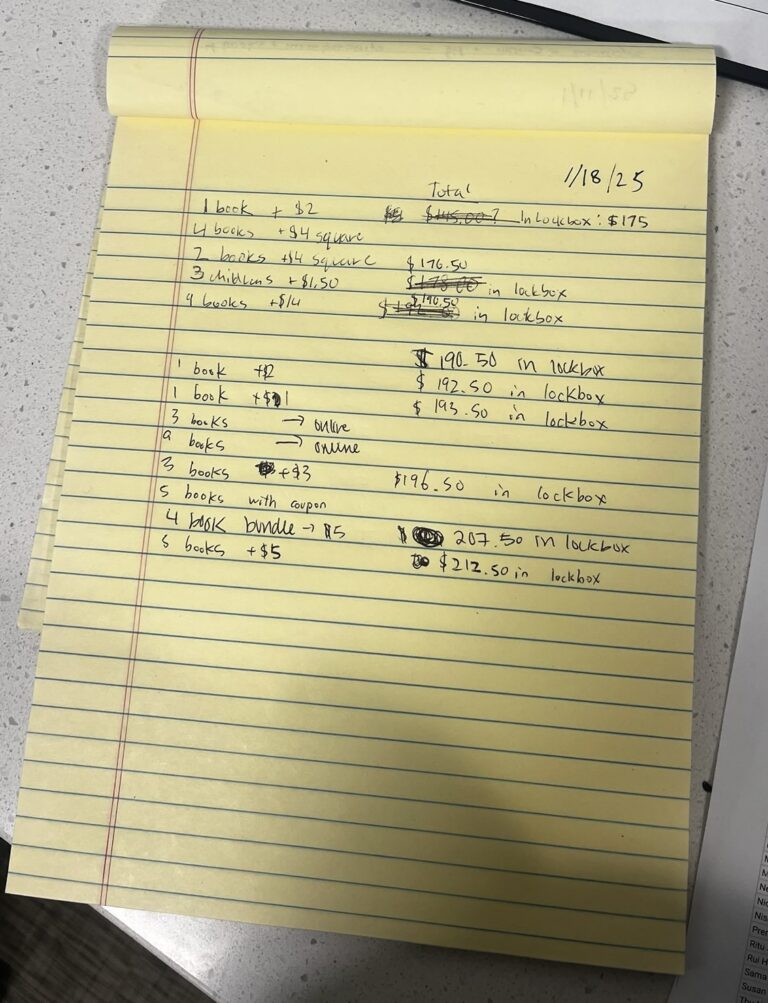 1/18/25
Total
1 book + $2 $145.00? In lockbox: $175
4 books +$4 square
2 books +$4 square $176.50
3 childrens +$1.50 $178.00 in lockbox
9 books +$14 $190.50 in lockbox
$190.50 in lockbox
1 book +$2 $192.50 in lockbox
1 book +$1 $193.50 in lockbox
3 books → online
9 books → online
3 books +$3 $196.50 in lockbox
5 books with coupon
4 book bundle → $5 $ 207.50 in lockbox
5 books +$5 $212.50 in lockbox
Ritu
Rui H
Sama
Susan